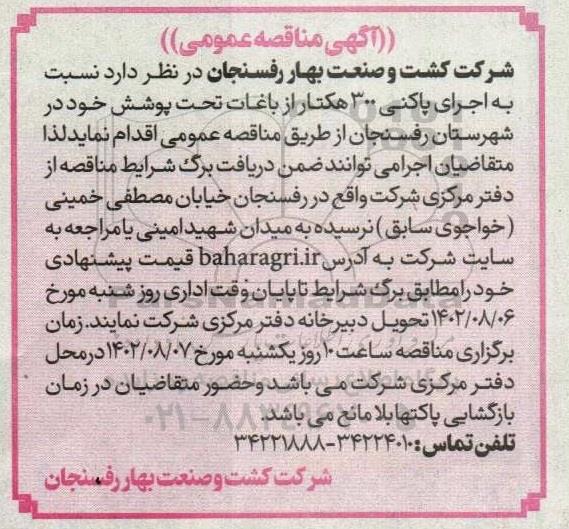 ((آگهی مناقصه عمومی))
شرکت کشت و صنعت بهار رفسنجان در نظر دارد نسبت
به اجرای پاکنی ۳۰۰ هکتار از باغات تحت پوشش خود در
شهرستان رفسنجان از طریق مناقصه عمومی اقدام نماید لذا
متقاضیان اجرا می توانند ضمن دریافت برگ شرایط مناقصه از
دفتر مرکزی شرکت واقع در رفسنجان خیابان مصطفی خمینی
(خواجوی سابق) نرسیده به میدان شهید امینی یا مراجعه به
سایت شرکت به آدرس baharagri.ir قیمت پیشنهادی
خود را مطابق برگ شرایط تا پایان وقت اداری روز شنبه مورخ
۱۴۰۲/۰۸/۰۶ تحویل دبیرخانه دفتر مرکزی شرکت نمایند. زمان
برگزاری مناقصه ساعت ۱۰ روز یکشنبه مورخ ۱۴۰۲/۰۸/۰۷ در محل
دفتر مرکزی شرکت می باشد و حضور متقاضیان در زمان
بازگشایی پاکتها بلا مانع می باشد.
تلفن تماس: ۳۴۲۲۴۰۱۰-۳۴۲۲۱۸۸۸
شرکت کشت و صنعت بهار رفسنجان